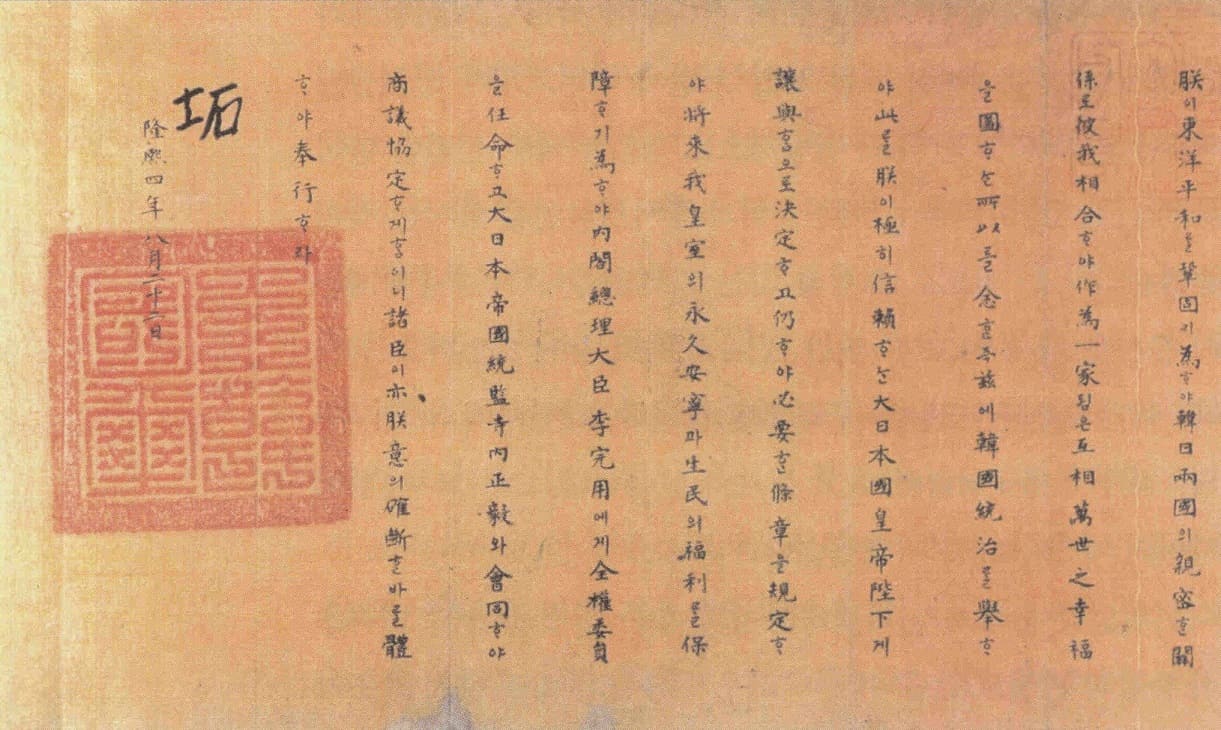 朕이東洋平和를鞏固히爲ᄒᆞ야韓日兩國의親密ᄒᆞᆫ關
係로彼我相合ᄒᆞ야作爲一家됨은互相萬世之幸福
을圖ᄒᆞᄂᆞᆫ所以를念ᄒᆞᆫ즉玆에韓國統治를擧ᄒᆞ
야此를朕이極히信賴ᄒᆞᄂᆞᆫ大日本國皇帝陛下게
讓與ᄒᆞᆷ으로決定ᄒᆞ고仍ᄒᆞ야必要ᄒᆞᆫ條章을規定ᄒᆞ
야將來我皇室의永久安寧과生民의福利를保
障ᄒᆞ기爲ᄒᆞ야內閣總理大臣李完用에게全權委員
을任命ᄒᆞ고大日本帝國統監寺內正毅와會同ᄒᆞ야
商議協定ᄒᆞ게ᄒᆞᆷ이니諸臣이亦朕意의確斷ᄒᆞᆫ바를體
ᄒᆞ야奉行ᄒᆞ라
坧
隆熙四年八月二十二日